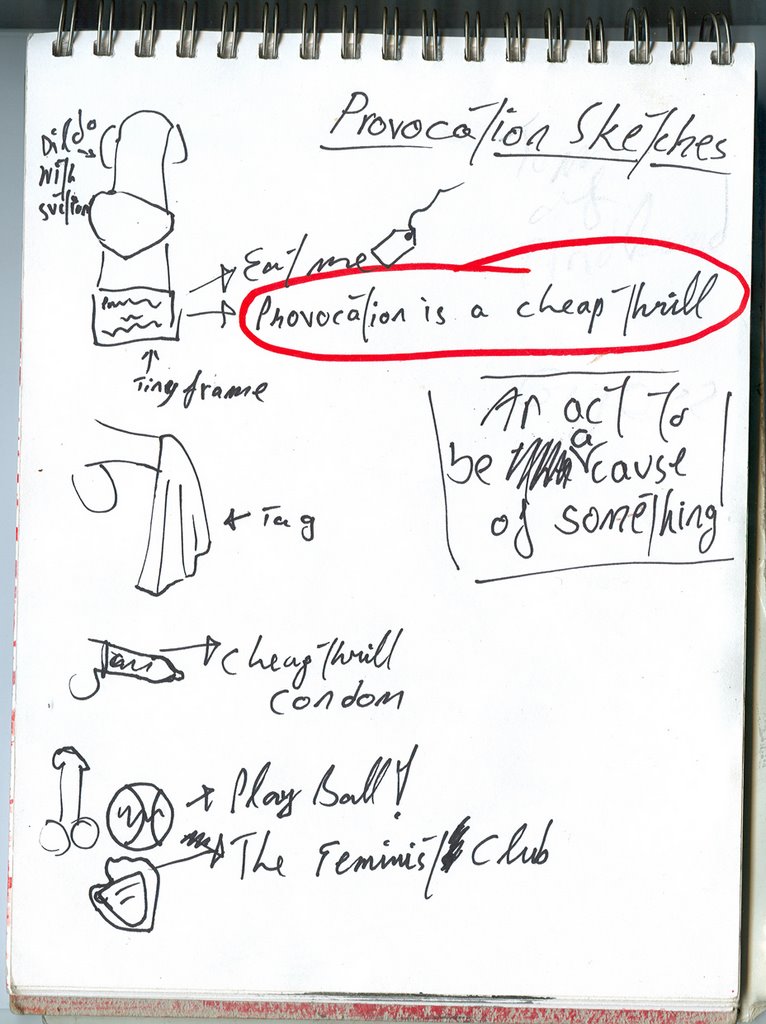 Provocation Sketches
Dildo
with
suction
Eat me
Provocation is a cheap thrill
Tiny frame
An act to
be a cause
of something
Tag
Cheap Thrill
condom
Play Ball!
The Feminist Club